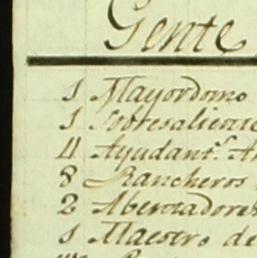 Gente
1 Mayordomo
1 Sobresaliente
4 Ayudant.^s
8 Rancheros
2
1 Maestro de